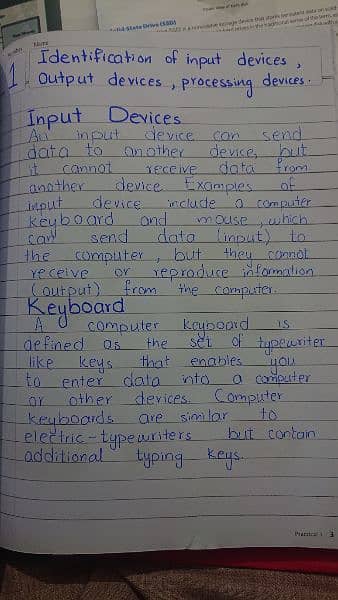 Solid-State Drive (SSD)
Name
1 Identification of input devices,
Output devices, processing devices.
Input Devices
An input device can send
data to another device, but
it cannot receive data from
another device. Examples of
input device include a computer
keyboard and mouse, which
can send data (input) to
the computer, but they cannot
receive or reproduce information
(output) from the computer.
Keyboard
A computer keyboard is
defined as the set of typewriter
like keys that enables you
to enter data into a computer
or other devices. Computer
keyboards are similar to
electric-typewriters but contain
additional typing keys.
Practical 1 3